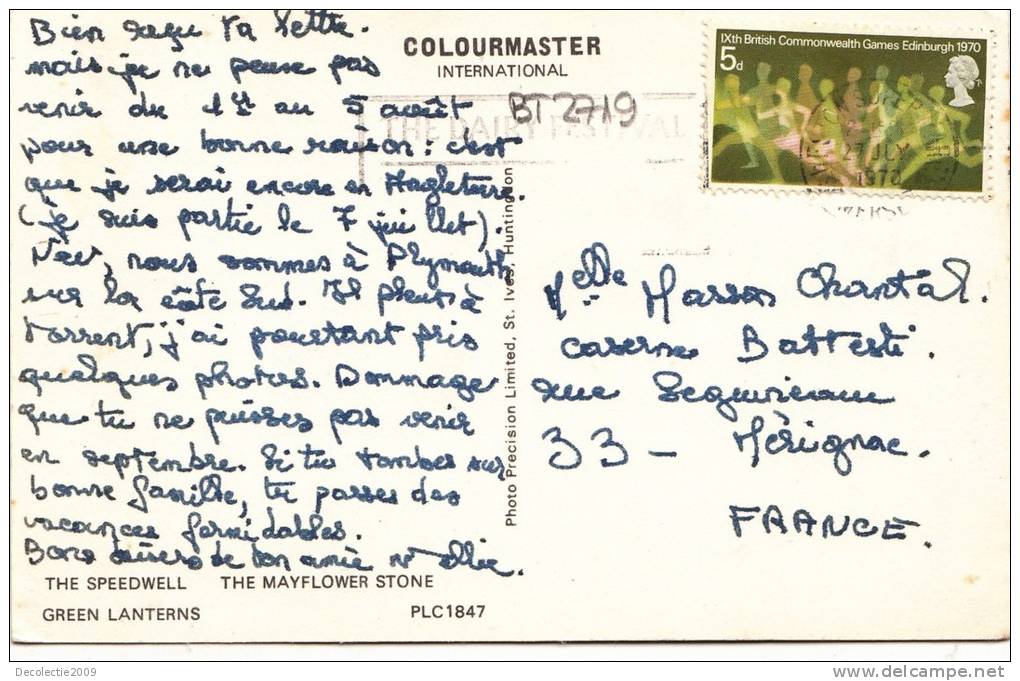 Bien reçu ta lettre.
mais je ne peux pas
venir du 1er au 5 août
pour une bonne raison : c'est
que je serai encore en Angleterre.
(je suis partie le 7 juillet).
nous sommes à Plymouth
sur la côte Sud. Il pleut à
torrent, j'ai pourtant pris
quelques photos. Dommage
que tu ne puisses pas venir
en septembre. Si tu tombes sur
bonne famille, tu passes des
vacances formidables.
Bons baisers de ton amie
THE SPEEDWELL THE MAYFLOWER STONE
GREEN LANTERNS PLC1847
COLOURMASTER
INTERNATIONAL
BT2719
THE DAIRY FESTIVAL
Photo Precision Limited, St. Ives, Huntingdon
IXth British Commonwealth Games Edinburgh 1970
5d
27 JLY
1970
Melle Masson Chantal.
caserne Battesti.
rue
33 - Mérignac.
FRANCE.
Decolectie2009
delcampe.net